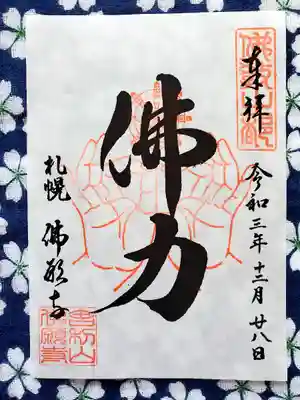 奉拝
令和三年十二月廿八日
佛力
札幌 佛願寺